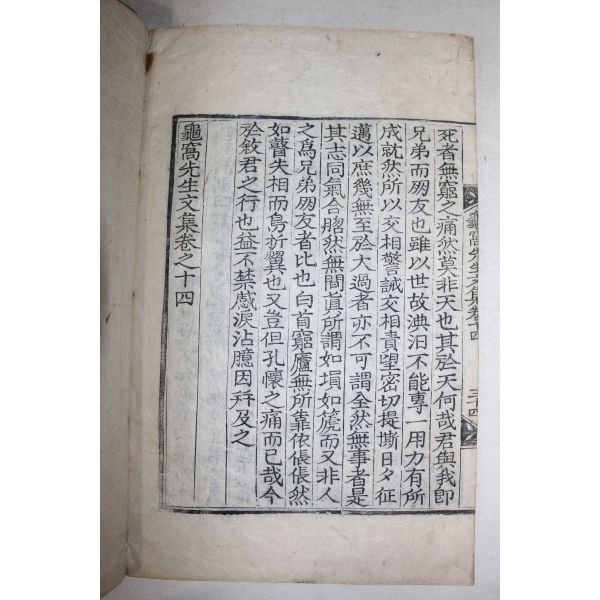 死者無窮之痛然莫非天也其於天何哉君與我卽
兄弟而朋友也雖以世故淟汩不能專一用力有所
成就然所以交相警誡交相責望密切提撕日夕征
邁以庶幾無至於大過者亦不可謂全然無事者是
其志同氣合脗然無間眞所謂如塤如箎而又非人
之爲兄弟朋友者比也白首窮廬無所靠依倀倀然
如瞽失相而鳥折翼也又豈但孔懷之痛而已哉今
於敘君之行也益不禁感淚沾臆因幷及之
龜窩先生文集卷之十四
龜窩先生文集卷十四 三十四